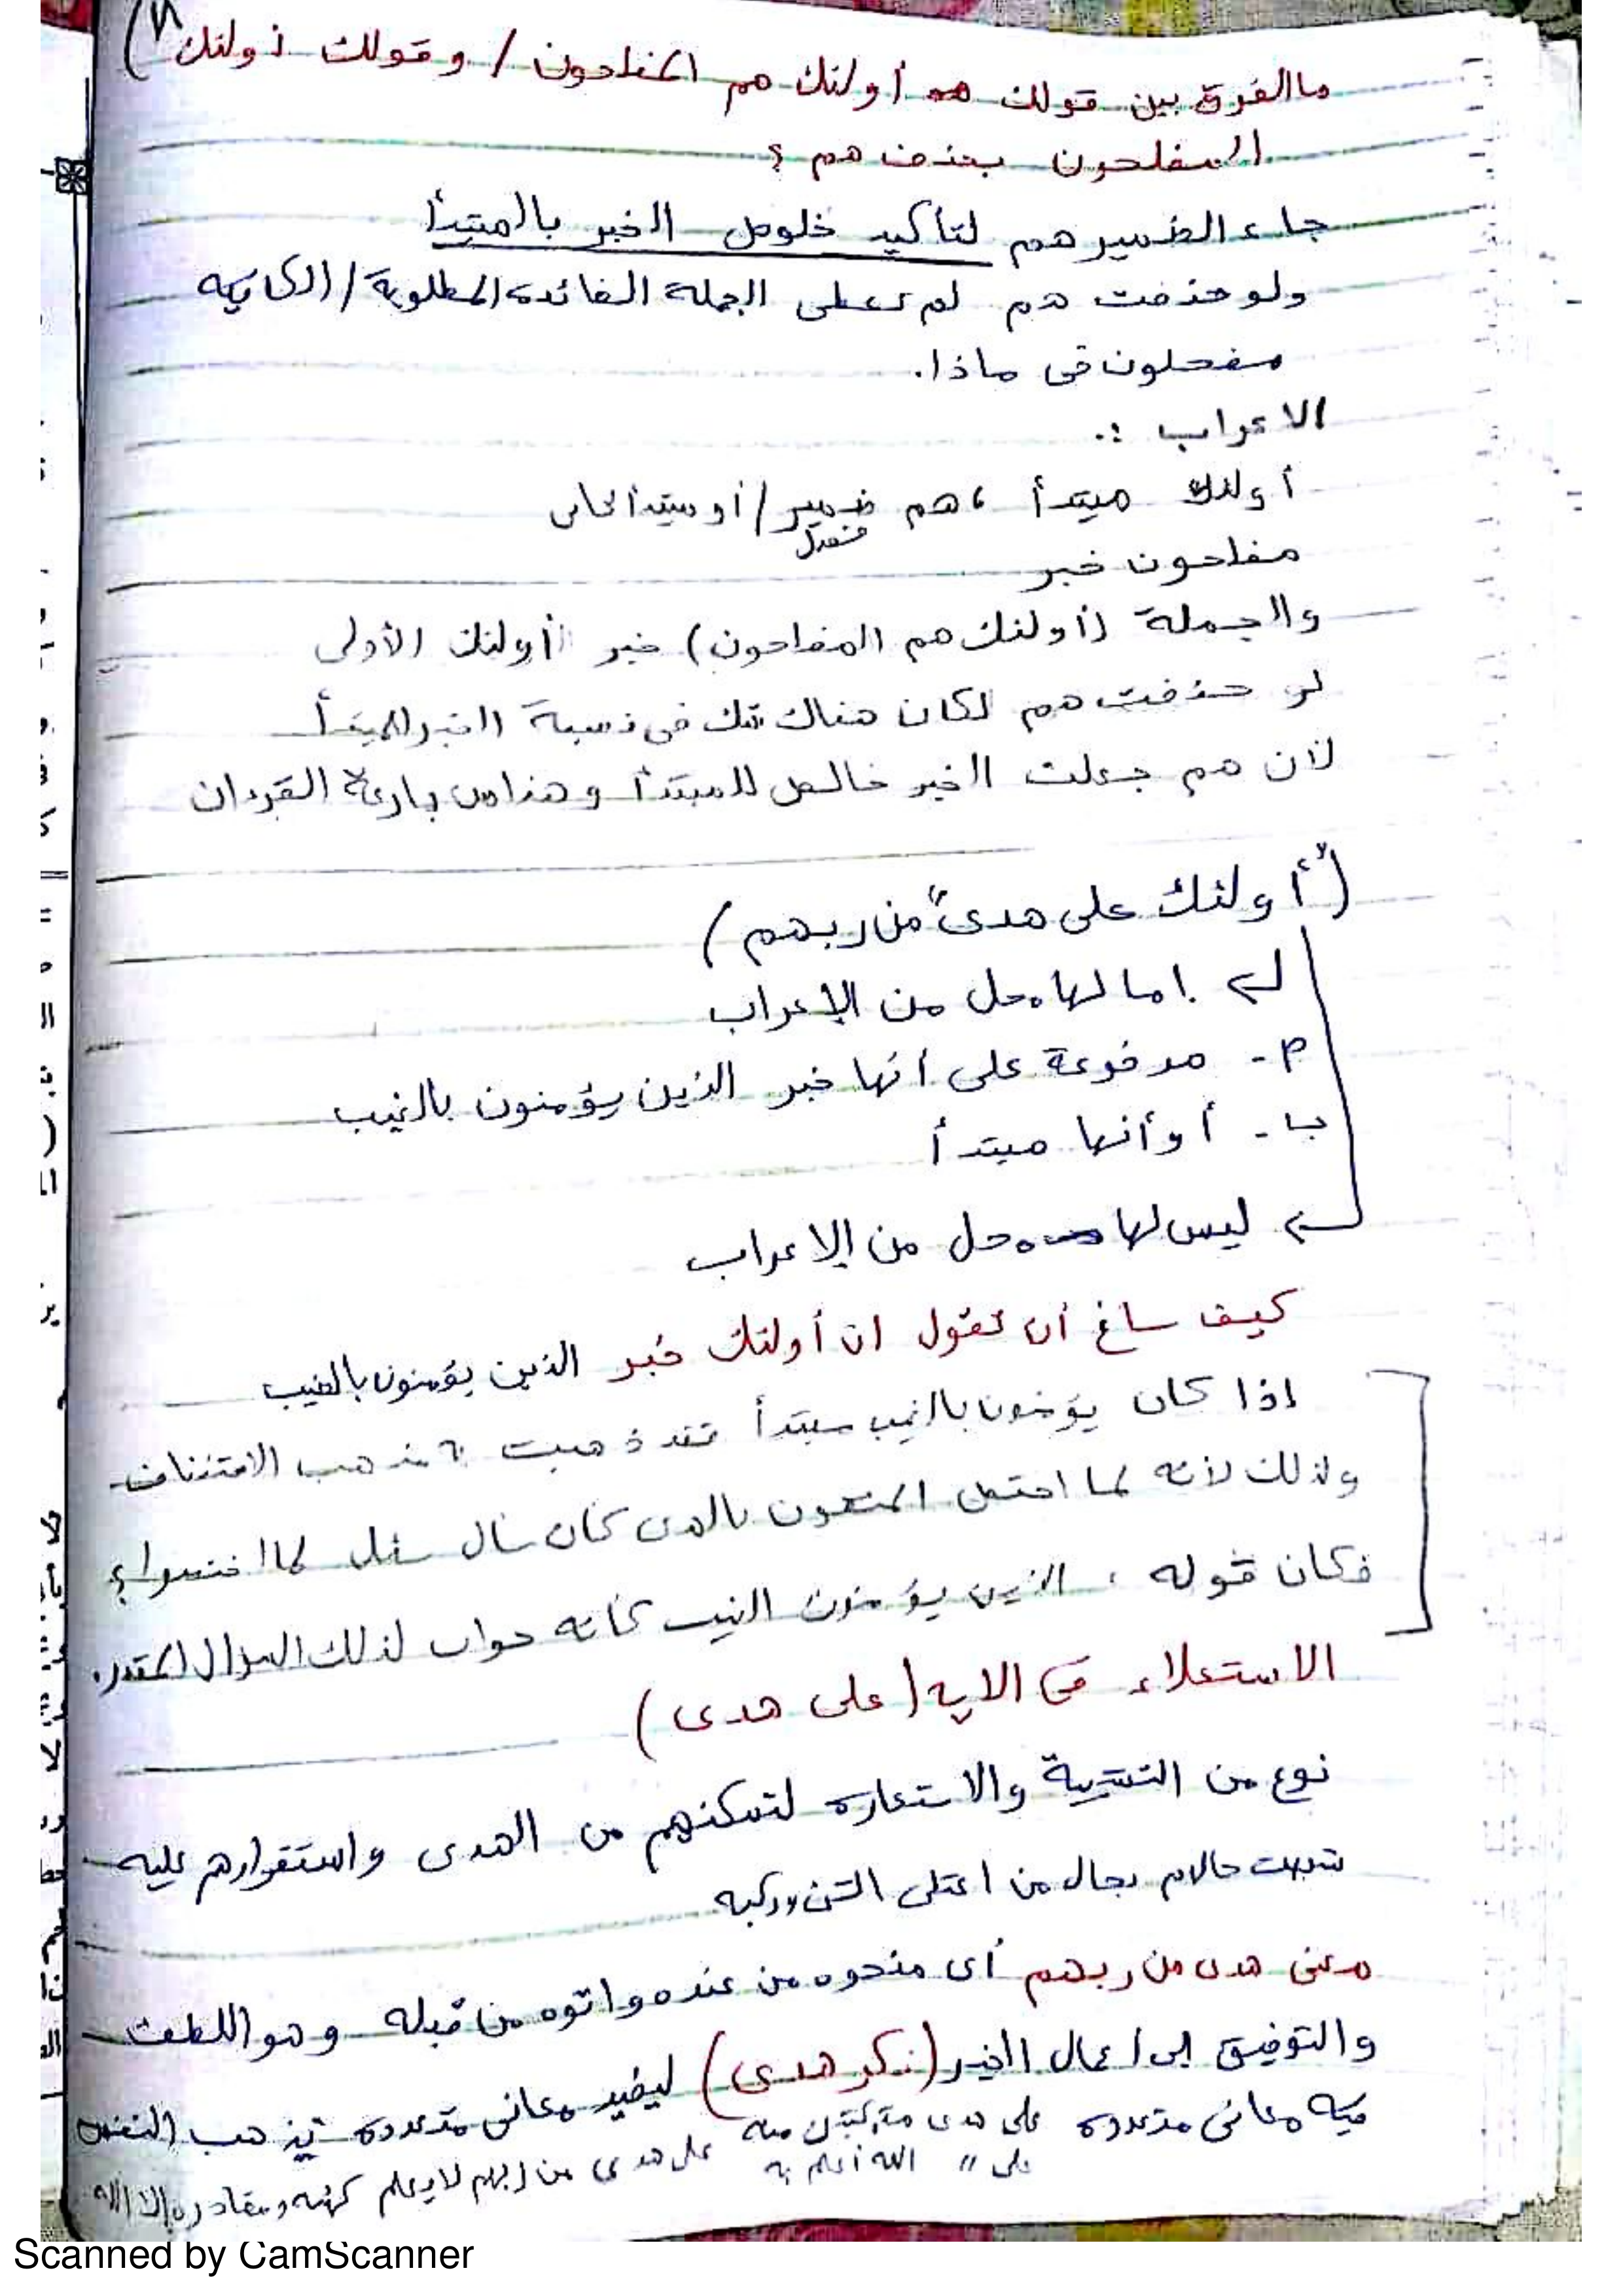 ما الفرق بين قولك أولئك هم المفلحون / وقولك أولئك
المفلحون بحذف هم ؟
جاء الضمير هم لتأكيد خلوص الخبر بالمبتدأ
ولو حذفت هم لم تعطى الجملة الفائده المطلوبة /
مفحلون فى ماذا.
الاعراب :.
أولئك مبتدأ ، هم ضمير / أو مبتدأ ثانى
فصل
مفلحون خبر
والجملة (أولئك هم المفلحون) خبر أولئك الأولى
لو حذفت هم لكان هناك شك فى نسبة الخبر للمبتدأ
لأن هم جعلت الخبر خالص للمبتدأ وهذا من القرءان
("أولئك على هدى" من ربهم)
إما لها محل من الإعراب
م - مرفوعة على أنها خبر الذين يؤمنون بالغيب
ب - أو أنها مبتدأ
ليس لها محل من الإعراب
كيف ساغ أن تقول ان أولئك خبر الذين يؤمنون بالغيب
إذا كان يؤمنون بالغيب مبتدأ فقد ذهبت مذهب الاستئناف
وذلك لأنه لما المتقون بالهدى كأن سأل
فكان قوله ، الذين يؤمنون الغيب كأنه جواب لذلك السؤال المقدر.
الاستعلاء فى الايه (على هدى)
نوع من التشبية والاستعاره لتمكنهم من الهدى واستقرارهم عليه
شبهت حالهم بحال من اعتلى الشئ وركبه
معنى هدى من ربهم أى منحوه من عنده واتوه من قبله وهو اللطف
والتوفيق إلى اعمال الخير (نكر هدى) ليفيد معانى متعدده تذهب النفس
فيه معانى متعدده على هدى منه
على " الله أعلم به على هدى من ربهم لا يعلم كنهه ومقاديره إلا الله
Scanned by CamScanner